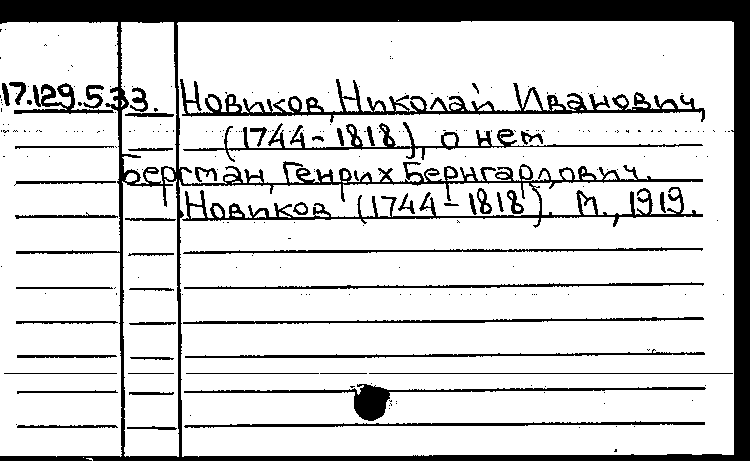 17.129.5.33. Новиков, Николай Иванович,
(1744-1818), о нем
Бергман, Генрих Бернгардович.
Новиков (1744-1818). М., 1919.